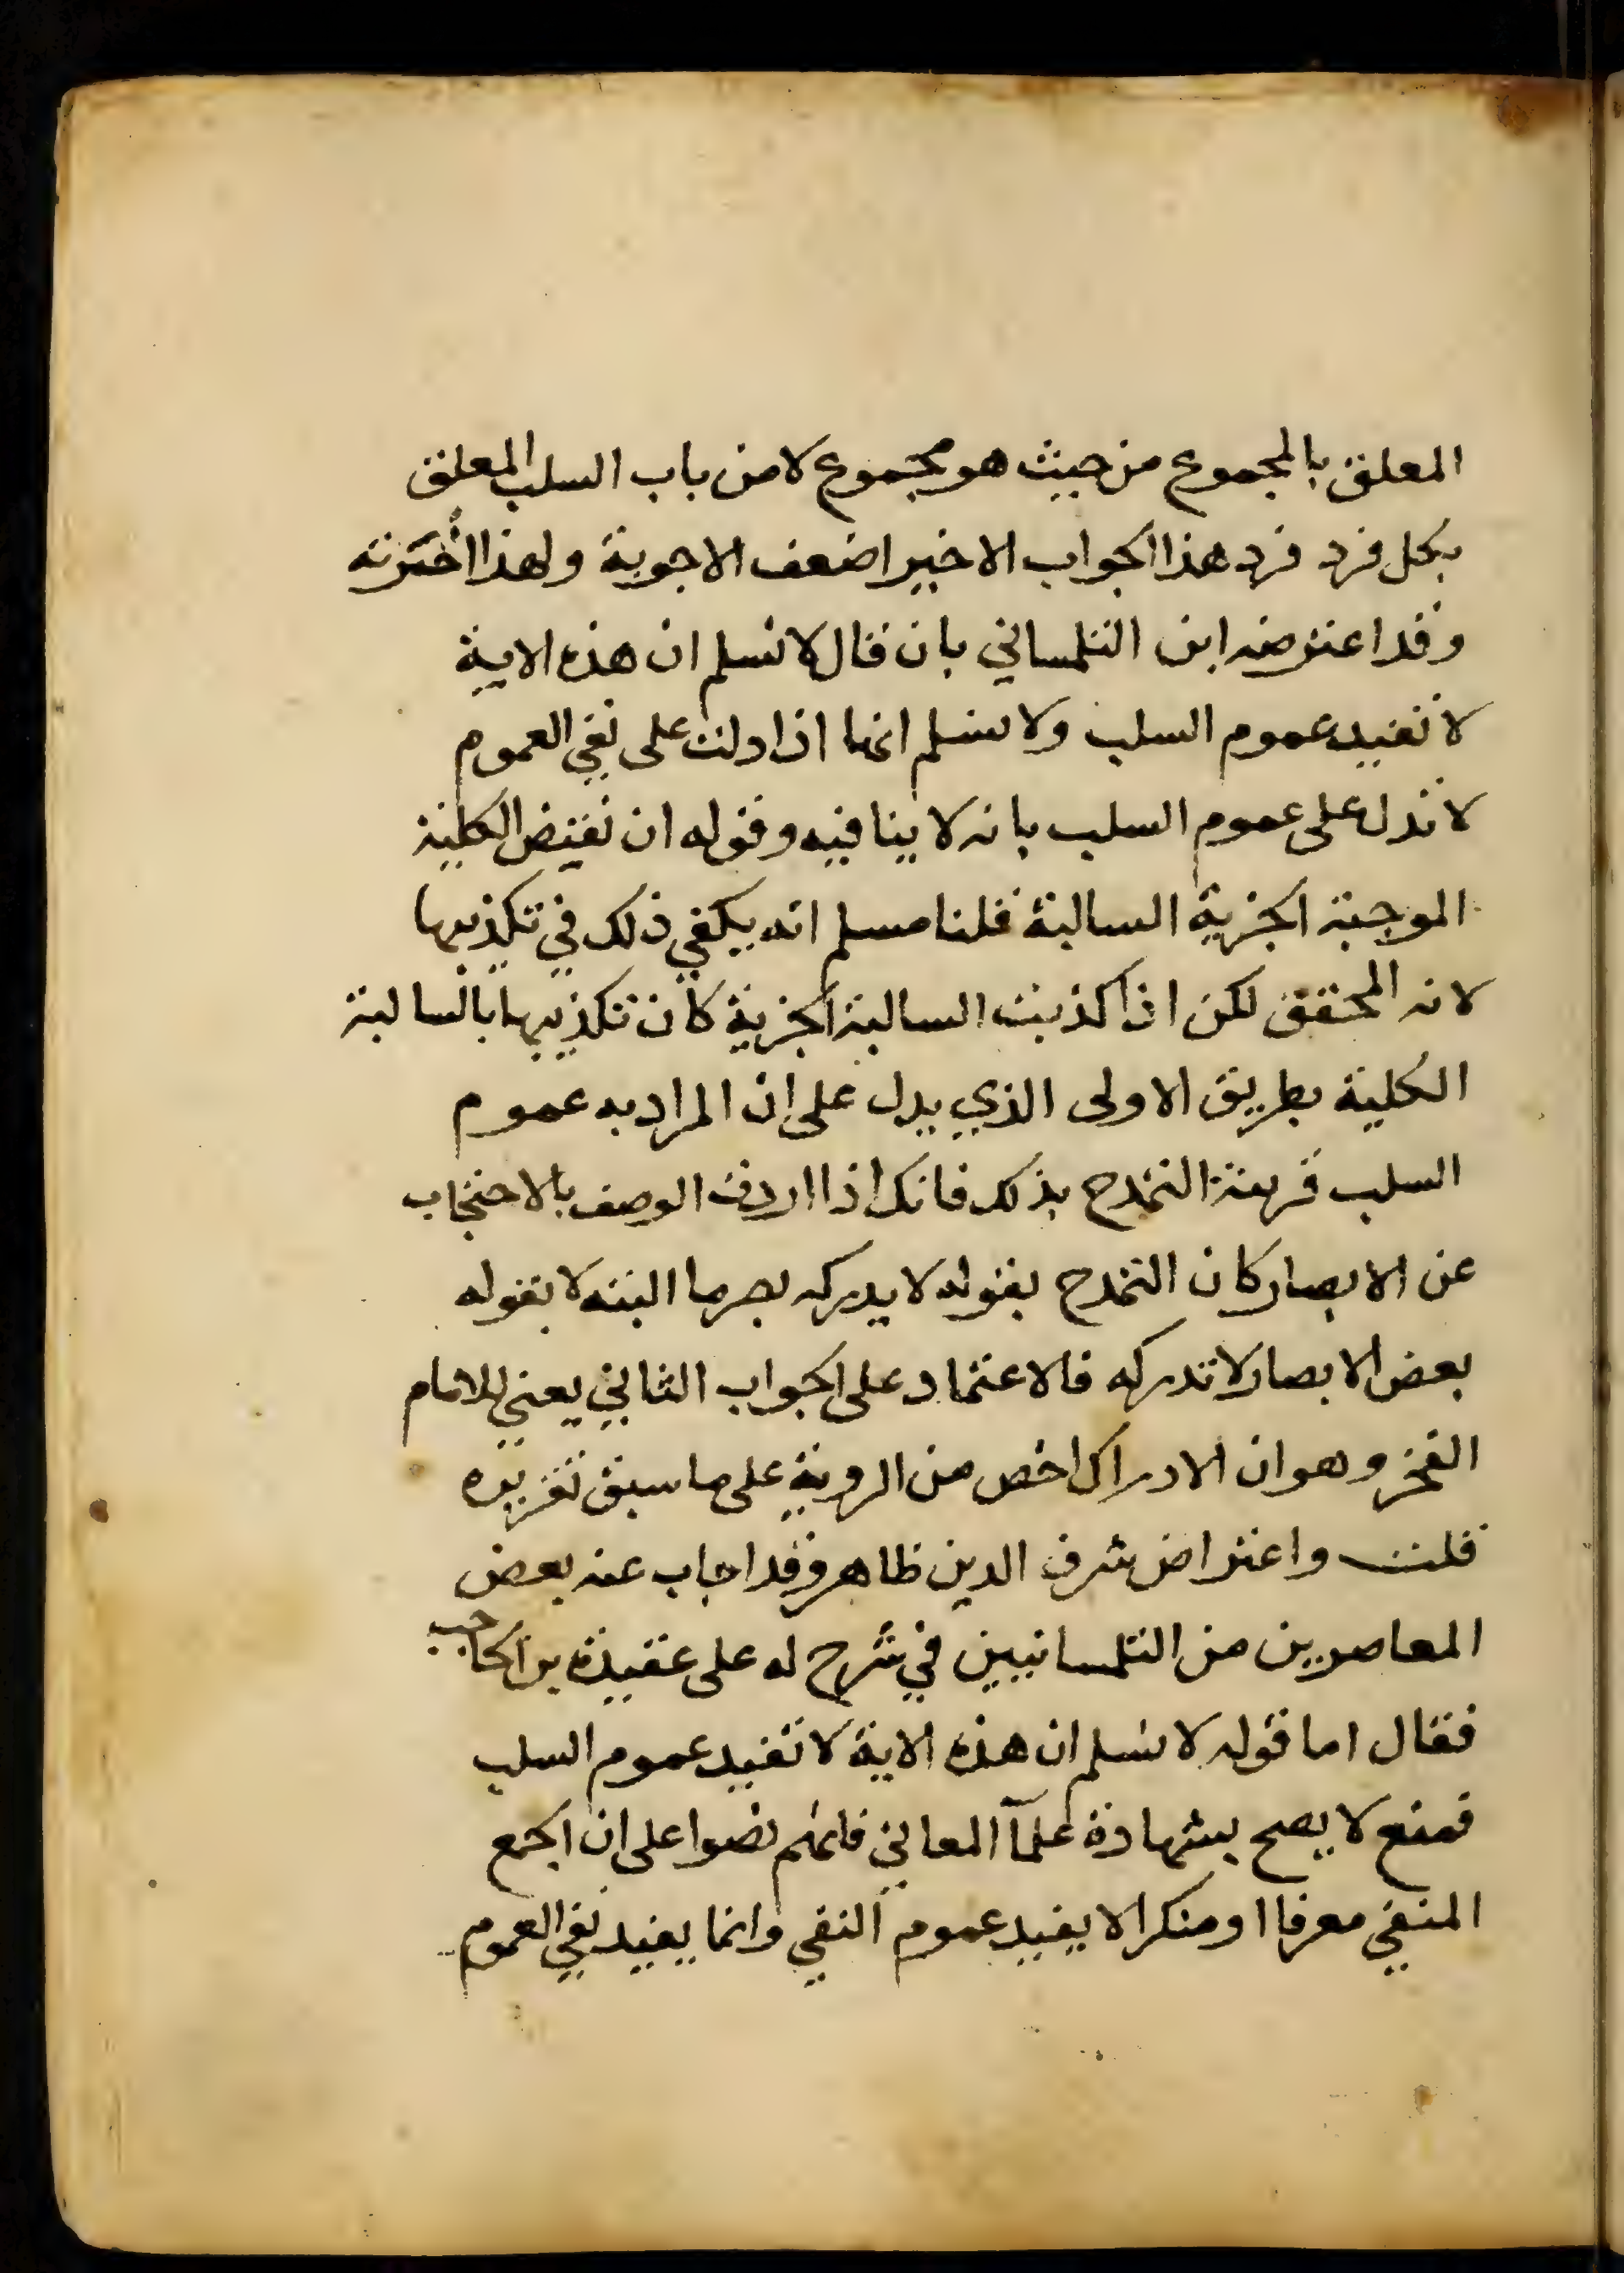 المعلق بالمجموع من حيث هو مجموع لا من باب السلب المعلق
بكل فرد فرد هذا الجواب الاخير اضعف الاجوبة ولهذا أخرته
وقد اعترضه ابن التلمساني بان قال لا نسلم ان هذه الاية
لا تفيد عموم السلب ولا نسلم انها اذا دلت على نفي العموم
لا تدل على عموم السلب بانه لا ينافيه وقوله ان نقيض الكلية
الموجبة الجزية السالبة قلنا مسلم انه يكفي ذلك في تكذيبها
لانه المحقق لكن اذا كذبت السالبة الجزية كان تكذيبها بالسالبة
الكلية بطريق الاولى الذي يدل على ان المراد به عموم
السلب قرينة التمدح بذلك فانك اذا اردت الوصف بالاحتجاب
عن الابصار كان التمدح بقوله لا يدركه بصر ما البته لا بقوله
بعض الابصار لا تدركه فالاعتماد على الجواب الثاني يعني للامام
الفخر وهو ان الادراك اخص من الروية على ما سبق تقريره
قلت واعتراض شرف الدين ظاهر وقد اجاب عنه بعض
المعاصرين من التلمسانيين في شرح له على عقيدة بن الحاجب
فقال اما قوله لا نسلم ان هذه الاية لا تفيد عموم السلب
فمنع لا يصح بشهادة علمآ المعاني فانهم نصوا على ان الجمع
المنفي معرفا او منكرا لا يفيد عموم النفي وانما يفيد نفي العموم